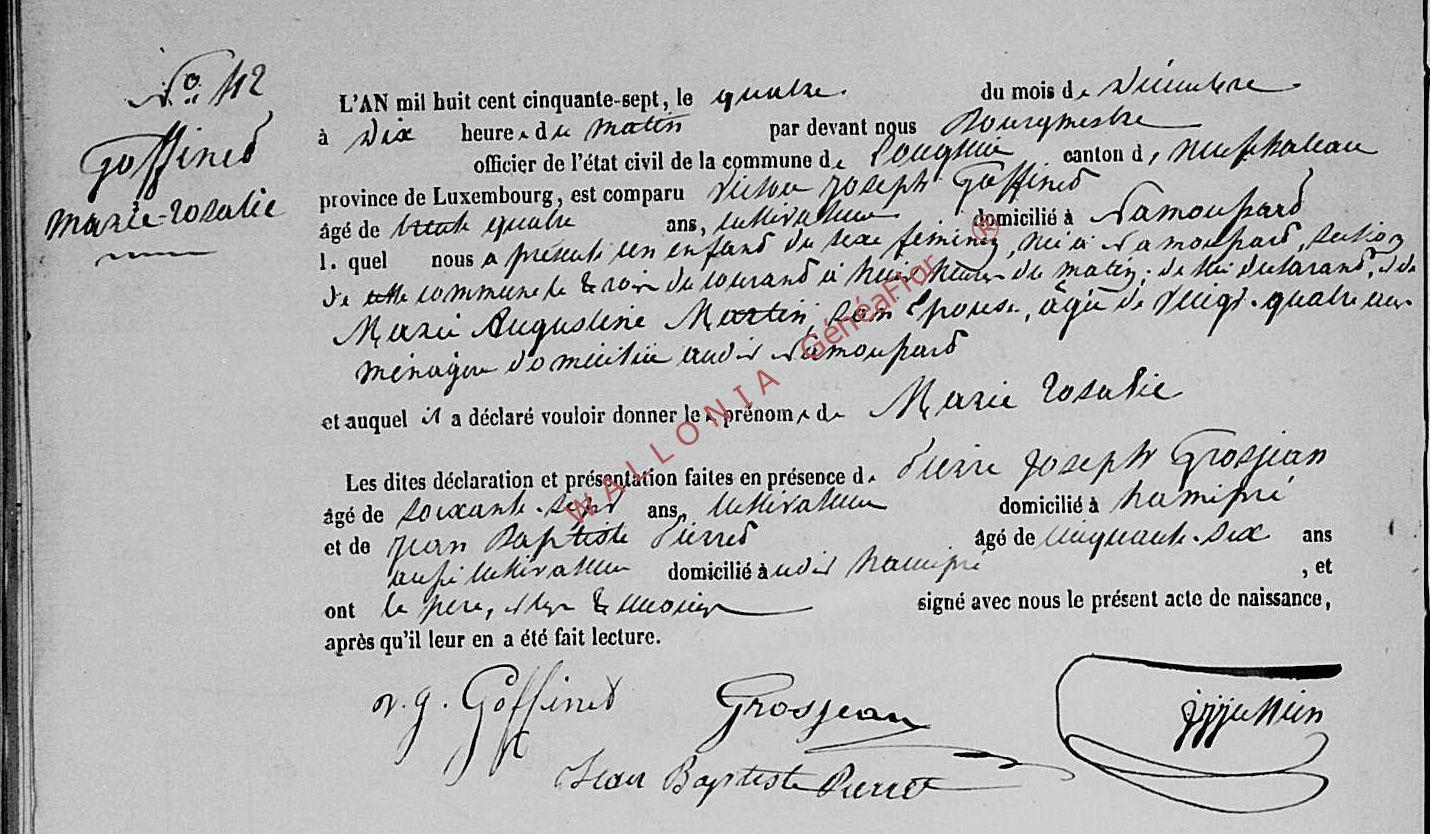 No. 42
Goffinet
Marie-rosalie
L'AN mil huit cent cinquante-sept, le quatre du mois de Décembre
à Dix heures du matin par devant nous Bourgmestre
officier de l'état civil de la commune de Longlier canton de neufchateau
province de Luxembourg, est comparu Victor Joseph Goffinet
âgé de trente quatre ans, cultivateur domicilié à Namoupard
lequel nous a présenté un enfant du sexe féminin, née à Namoupard, section
de cette commune le trois du courant à huit heures du matin, de lui déclarant, et de
Marie Augustine Martin, son Epouse, âgée de vingt-quatre ans
ménagère domiciliée audit Namoupard
et auquel il a déclaré vouloir donner les prénoms de Marie rosalie
Les dites déclaration et présentation faites en présence de Pierre Joseph Grosjean
âgé de soixante-sept ans, cultivateur domicilié à hamipré
et de Jean Baptiste Pierret âgé de cinquante-six ans
aussi cultivateur domicilié audit hamipré, et
ont le père, et les témoins signé avec nous le présent acte de naissance,
après qu'il leur en a été fait lecture.
v. j. Goffinet Grosjean
Jean Baptiste Pierret
WALLONIA GénéaFlor ®